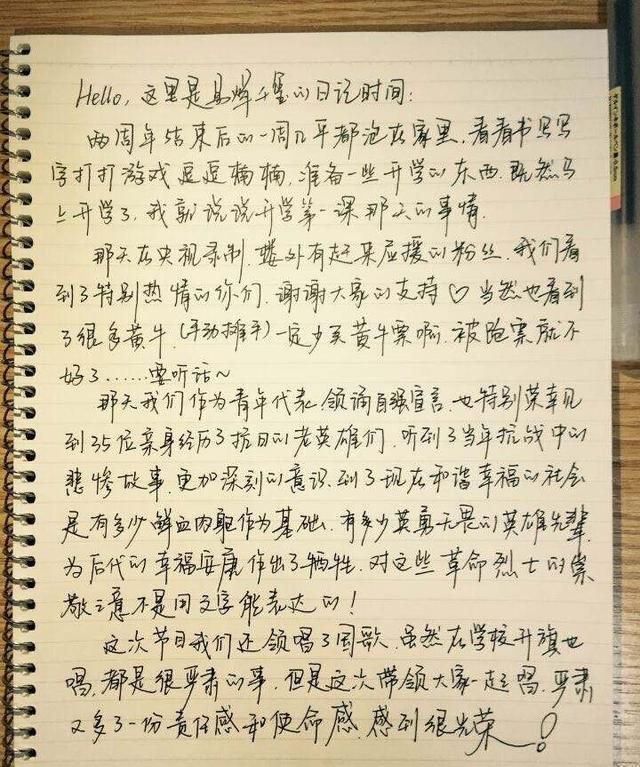 Hello, 这里是易烊千玺的日记时间:
两周年结束后的一周几乎都泡在家里,看看书写写
字打打游戏逗逗楠楠,准备一些开学的东西.既然马
上开学了,我就说说开学第一课那天的事情.
那天在央视录制,楼外有赶来应援的粉丝.我们看
到了特别热情的你们,谢谢大家的支持♡当然也看到
了很多黄牛.(手动摊手)一定少买黄牛票啊.被跑票就不
好了……要听话~
那天我们作为青年代表,领诵自强宣言,也特别荣幸见
到35位亲身经历了抗日的老英雄们,听到了当年抗战中的
悲惨故事,更加深刻的意识到了现在和谐幸福的社会
是有多少鲜血肉躯作为基础.有多少英勇无畏的英雄先辈,
为后代的幸福安康作出了牺牲.对这些革命烈士的崇
敬之意不是用文字能表达的!
这次节目我们还领唱了国歌.虽然在学校升旗也
唱,都是很严肃的事.但是这次带领大家一起唱,严肃
又多了一份责任感和使命感.感到很光荣!